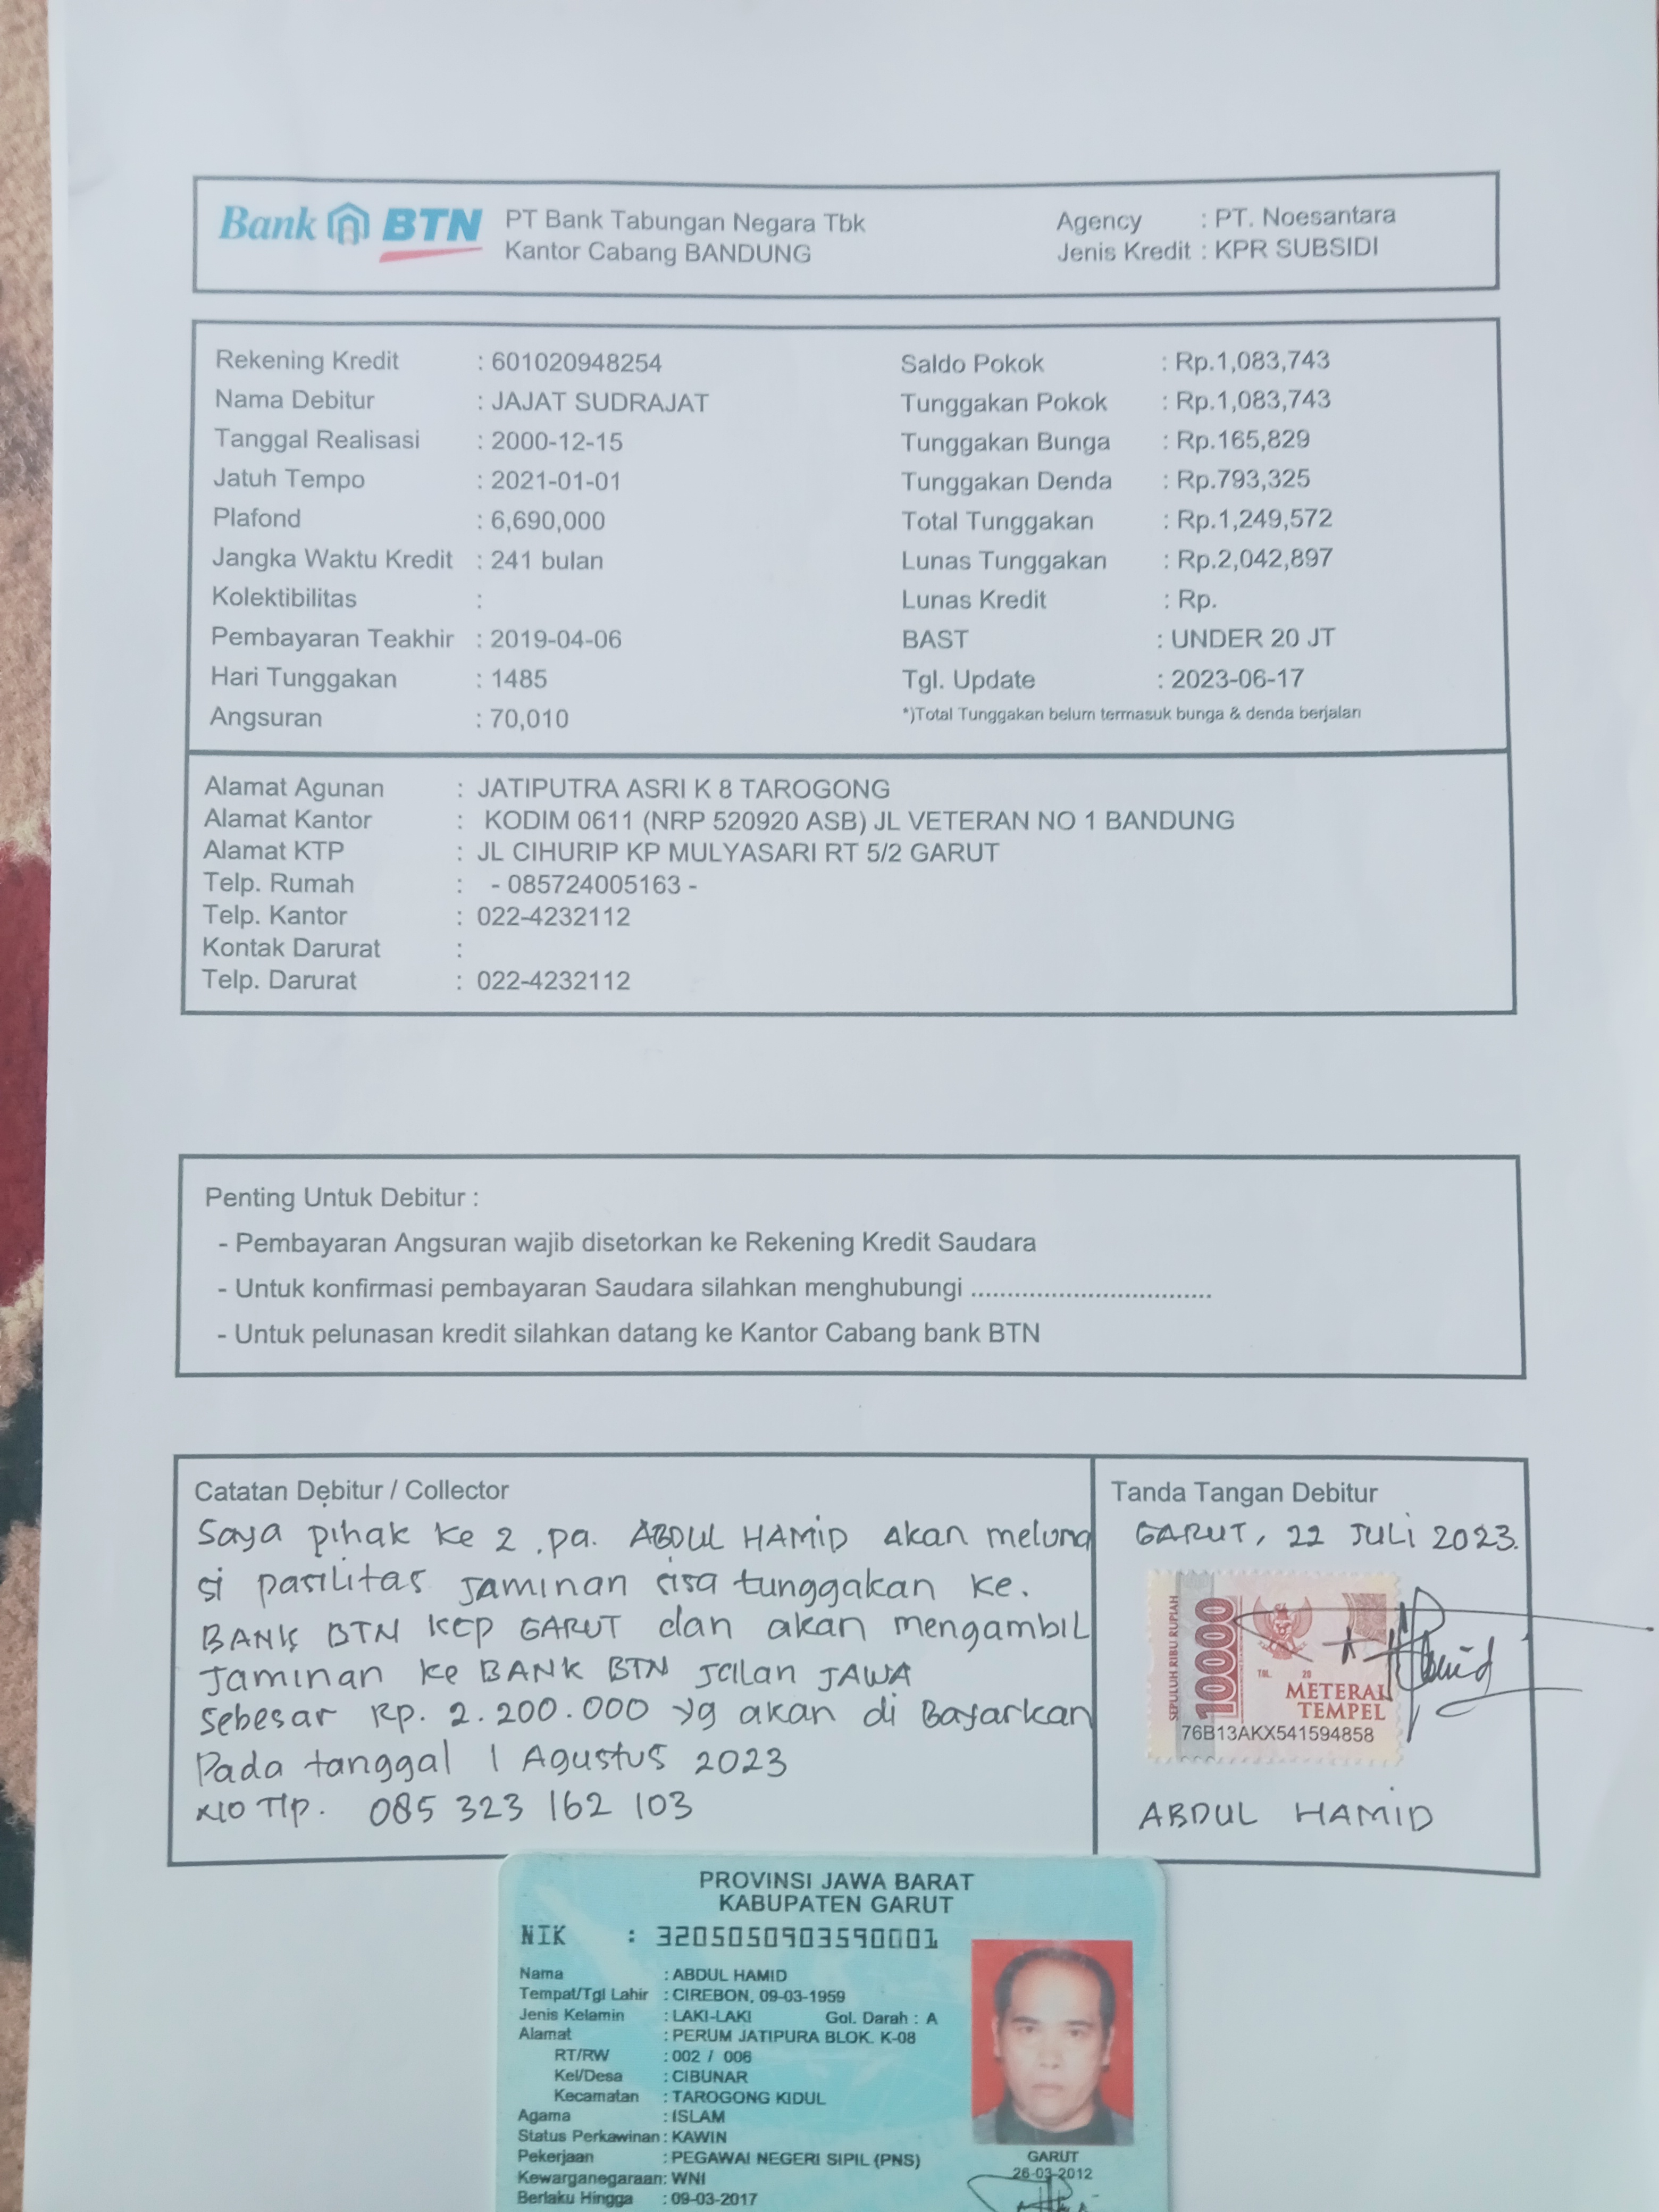 Bank BTN PT Bank Tabungan Negara Tbk
Kantor Cabang BANDUNG
Agency : PT. Noesantara
Jenis Kredit : KPR SUBSIDI
Rekening Kredit : 601020948254
Nama Debitur : JAJAT SUDRAJAT
Tanggal Realisasi : 2000-12-15
Jatuh Tempo : 2021-01-01
Plafond : 6,690,000
Jangka Waktu Kredit : 241 bulan
Kolektibilitas :
Pembayaran Teakhir : 2019-04-06
Hari Tunggakan : 1485
Angsuran : 70,010
Saldo Pokok : Rp.1,083,743
Tunggakan Pokok : Rp.1,083,743
Tunggakan Bunga : Rp.165,829
Tunggakan Denda : Rp.793,325
Total Tunggakan : Rp.1,249,572
Lunas Tunggakan : Rp.2,042,897
Lunas Kredit : Rp.
BAST : UNDER 20 JT
Tgl. Update : 2023-06-17
*)Total Tunggakan belum termasuk bunga & denda berjalan
Alamat Agunan : JATIPUTRA ASRI K 8 TAROGONG
Alamat Kantor : KODIM 0611 (NRP 520920 ASB) JL VETERAN NO 1 BANDUNG
Alamat KTP : JL CIHURIP KP MULYASARI RT 5/2 GARUT
Telp. Rumah : - 085724005163 -
Telp. Kantor : 022-4232112
Kontak Darurat :
Telp. Darurat : 022-4232112
Penting Untuk Debitur :
- Pembayaran Angsuran wajib disetorkan ke Rekening Kredit Saudara
- Untuk konfirmasi pembayaran Saudara silahkan menghubungi .................................
- Untuk pelunasan kredit silahkan datang ke Kantor Cabang bank BTN
Catatan Debitur / Collector
Saya pihak ke 2 .pa. ABDUL HAMID akan meluna
si pasilitas jaminan sisa tunggakan ke.
BANK BTN KCP GARUT dan akan mengambil
jaminan ke BANK BTN Jalan JAWA
sebesar Rp. 2.200.000 yg akan di Bayarkan
Pada tanggal 1 Agustus 2023
NO Tlp. 085 323 162 103
Tanda Tangan Debitur
GARUT, 22 JULI 2023.
SEPULUH RIBU RUPIAH
10000
TGL. 20
METERAI
TEMPEL
76B13AKX541594858
ABDUL HAMID
PROVINSI JAWA BARAT
KABUPATEN GARUT
NIK : 3205050903590001
Nama : ABDUL HAMID
Tempat/Tgl Lahir : CIREBON, 09-03-1959
Jenis Kelamin : LAKI-LAKI Gol. Darah : A
Alamat : PERUM JATIPURA BLOK. K-08
RT/RW : 002 / 006
Kel/Desa : CIBUNAR
Kecamatan : TAROGONG KIDUL
Agama : ISLAM
Status Perkawinan : KAWIN
Pekerjaan : PEGAWAI NEGERI SIPIL (PNS)
Kewarganegaraan: WNI
Berlaku Hingga : 09-03-2017
GARUT
26-03-2012